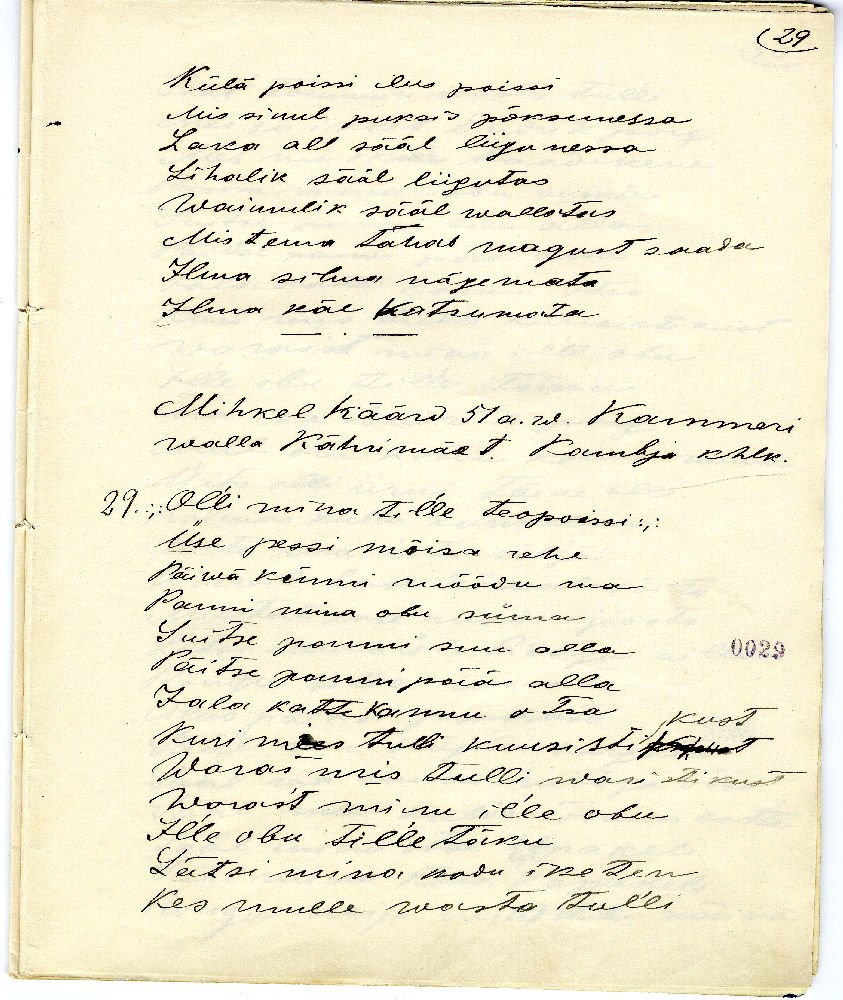 29
Külä poissi ilus poissi
Mis sinul puksis põksunessa
Laka all sääl liigunessa
Lihalik sääl liigutas
Waimulik sääl wallatas
Mis tema tahab magust saada
Ilma silma nägemata
Ilma käe katsumata
Mihkel Käärd 51 a. w. Kammeri
walla Kähri mäet. Kambja khlk.
29. :,: Olli mina tille teopoissi :,:
Üse pessi mõisa rehe
Päiwä künni möödu ma
Panni mina obu sööma
Suitse panni suu alla
Päitse panni pää alla
Jala katte kannu otsa
Kuri mees tulli kuusisti kust
Waras mis tulli waristikust
Warast minu ille obu
Ille obu tille täku
Lätsi mina kodu iketen
Kes mulle wasta tulli
0029